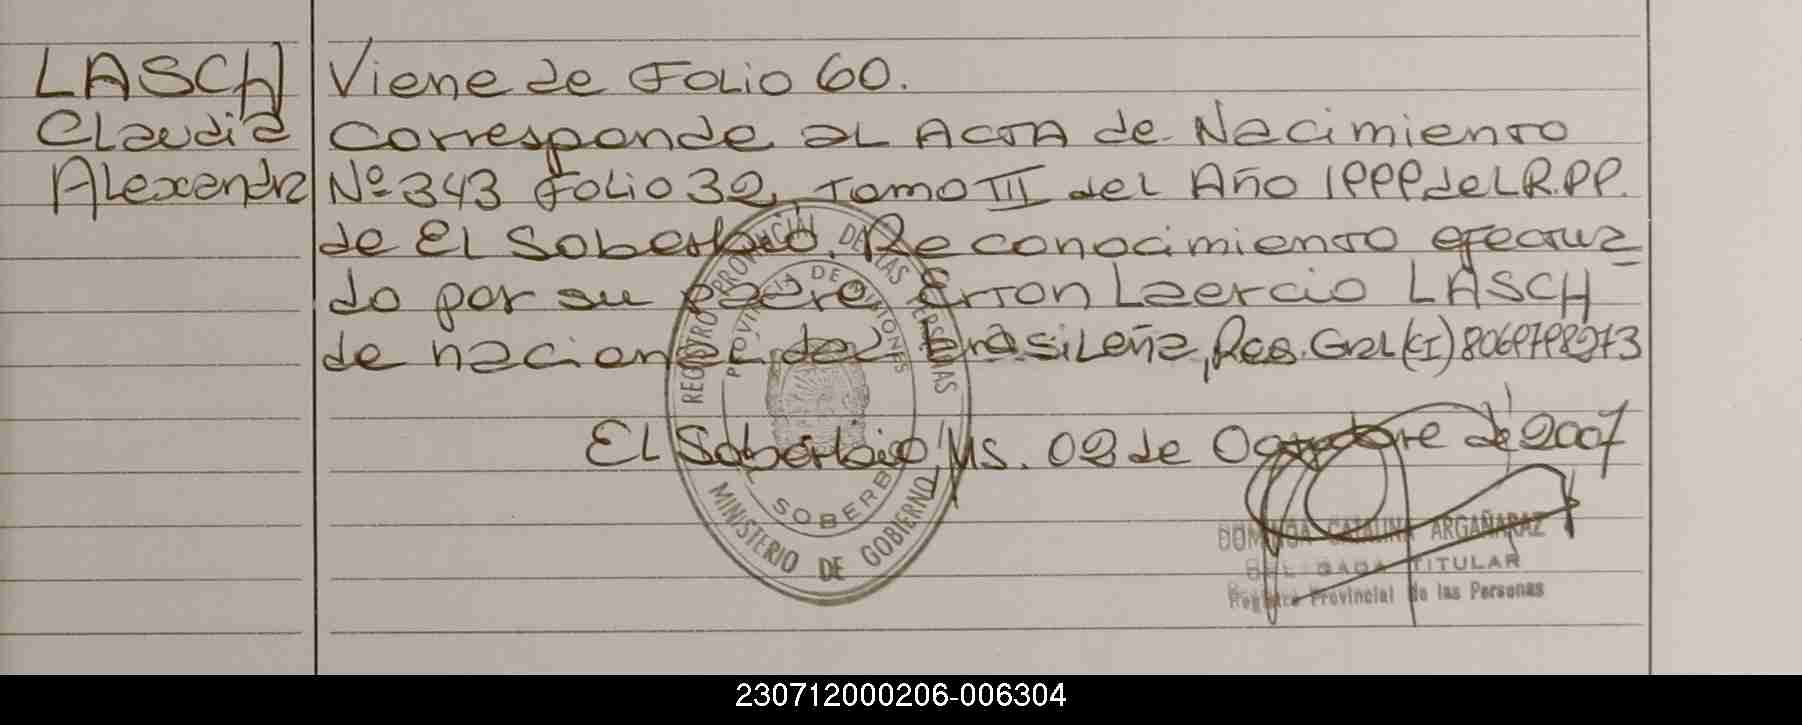 LASCH
Claudia
Alexandra
Viene de Folio 60.
Corresponde al Acta de Nacimiento
Nº 343 Folio 32, Tomo III del Año 1999 del R.P.P.
de El Soberbio. Reconocimiento efectua
do por su padre Erron Laercio LASCH
de nacionalidad brasileña, Reg. Gral (CI)
El Soberbio, Ms. 02 de Octubre de 2007
REGISTRO PROVINCIAL DE LAS PERSONAS
PROVINCIA DE MISIONES
SOBERB
MINISTERIO DE GOBIERNO
CATALINA ARGAÑARAZ
DELEGADA TITULAR
Registro Provincial de las Personas
230712000206-006304